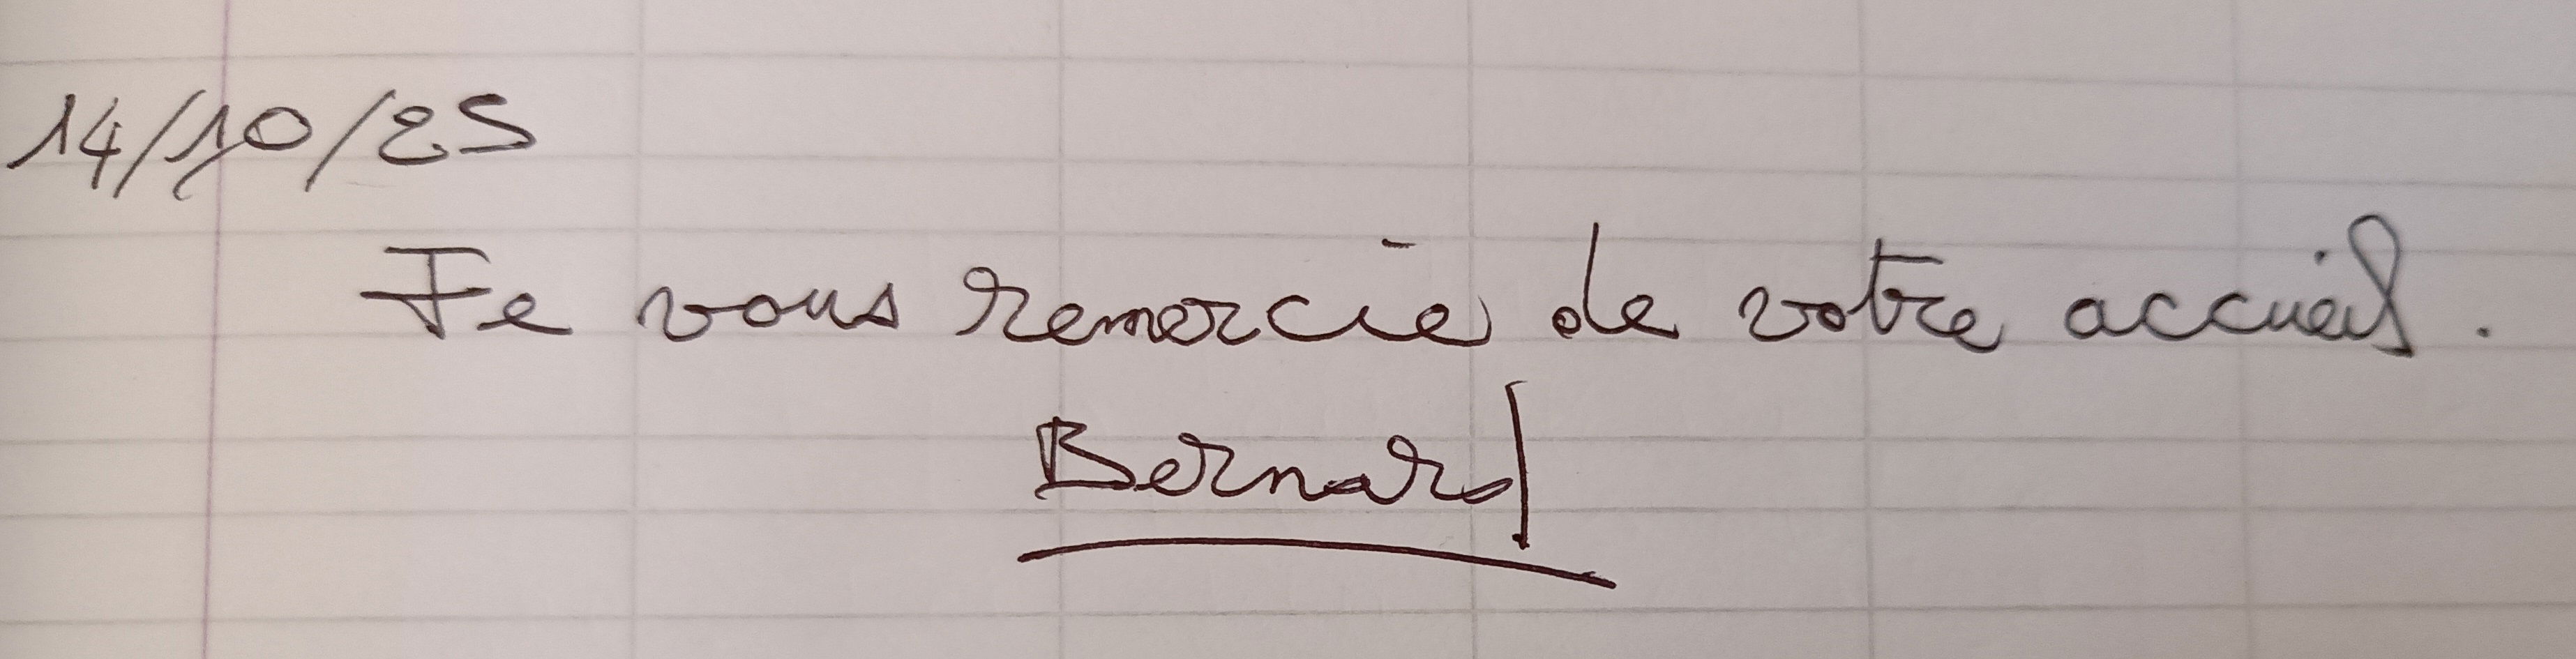 14/10/25
Je vous remercie de votre accueil.
Bernard